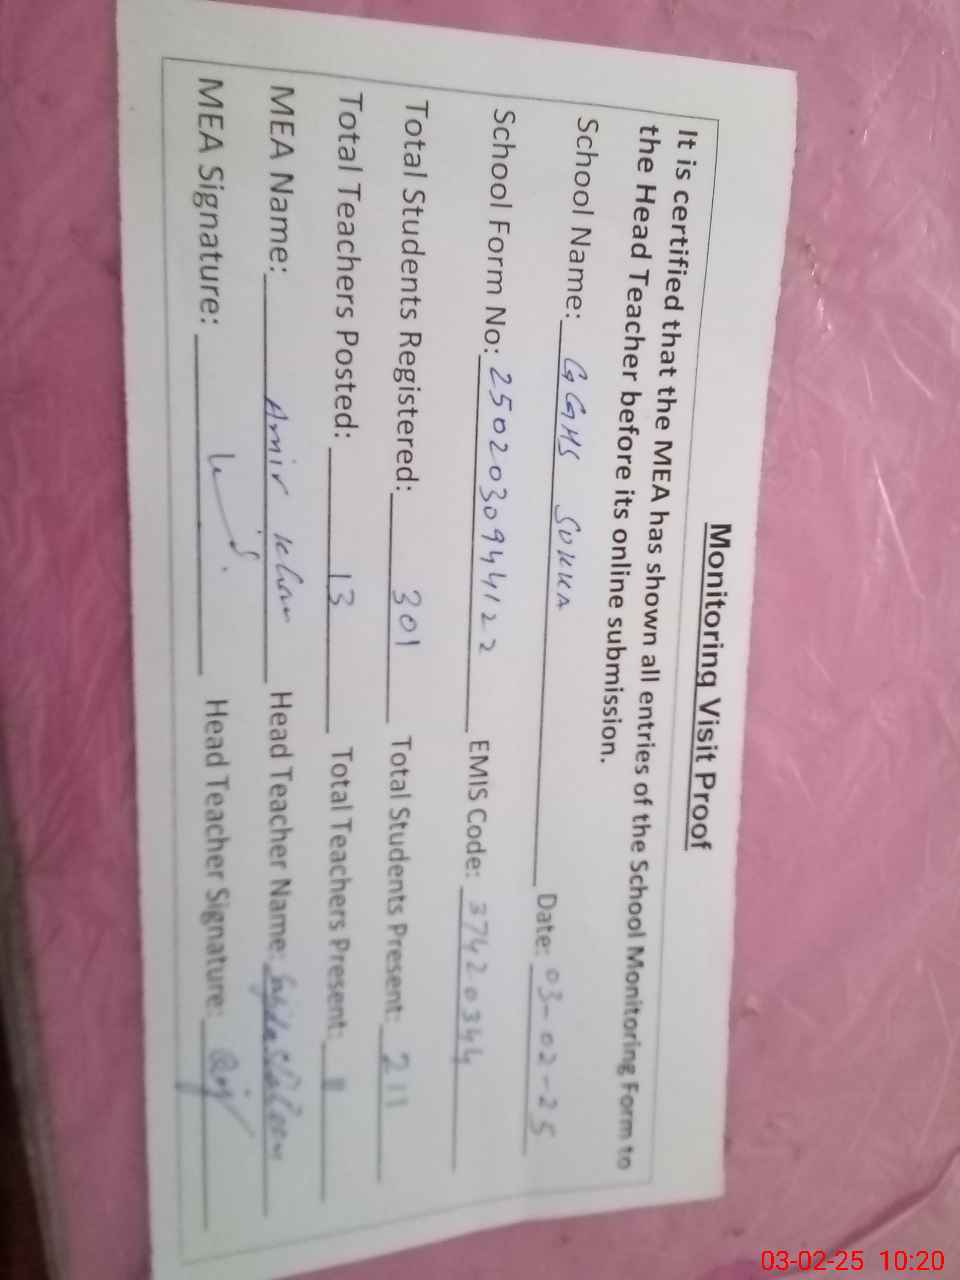 Monitoring Visit Proof
It is certified that the MEA has shown all entries of the School Monitoring Form to
the Head Teacher before its online submission.
School Name: GGHS SUKKA Date: 03-02-25
School Form No: 2502030944122 EMIS Code: 37420344
Total Students Registered: 301 Total Students Present: 211
Total Teachers Posted: 13 Total Teachers Present: 11
MEA Name: Amir Khan Head Teacher Name:
MEA Signature: Head Teacher Signature:
03-02-25 10:20